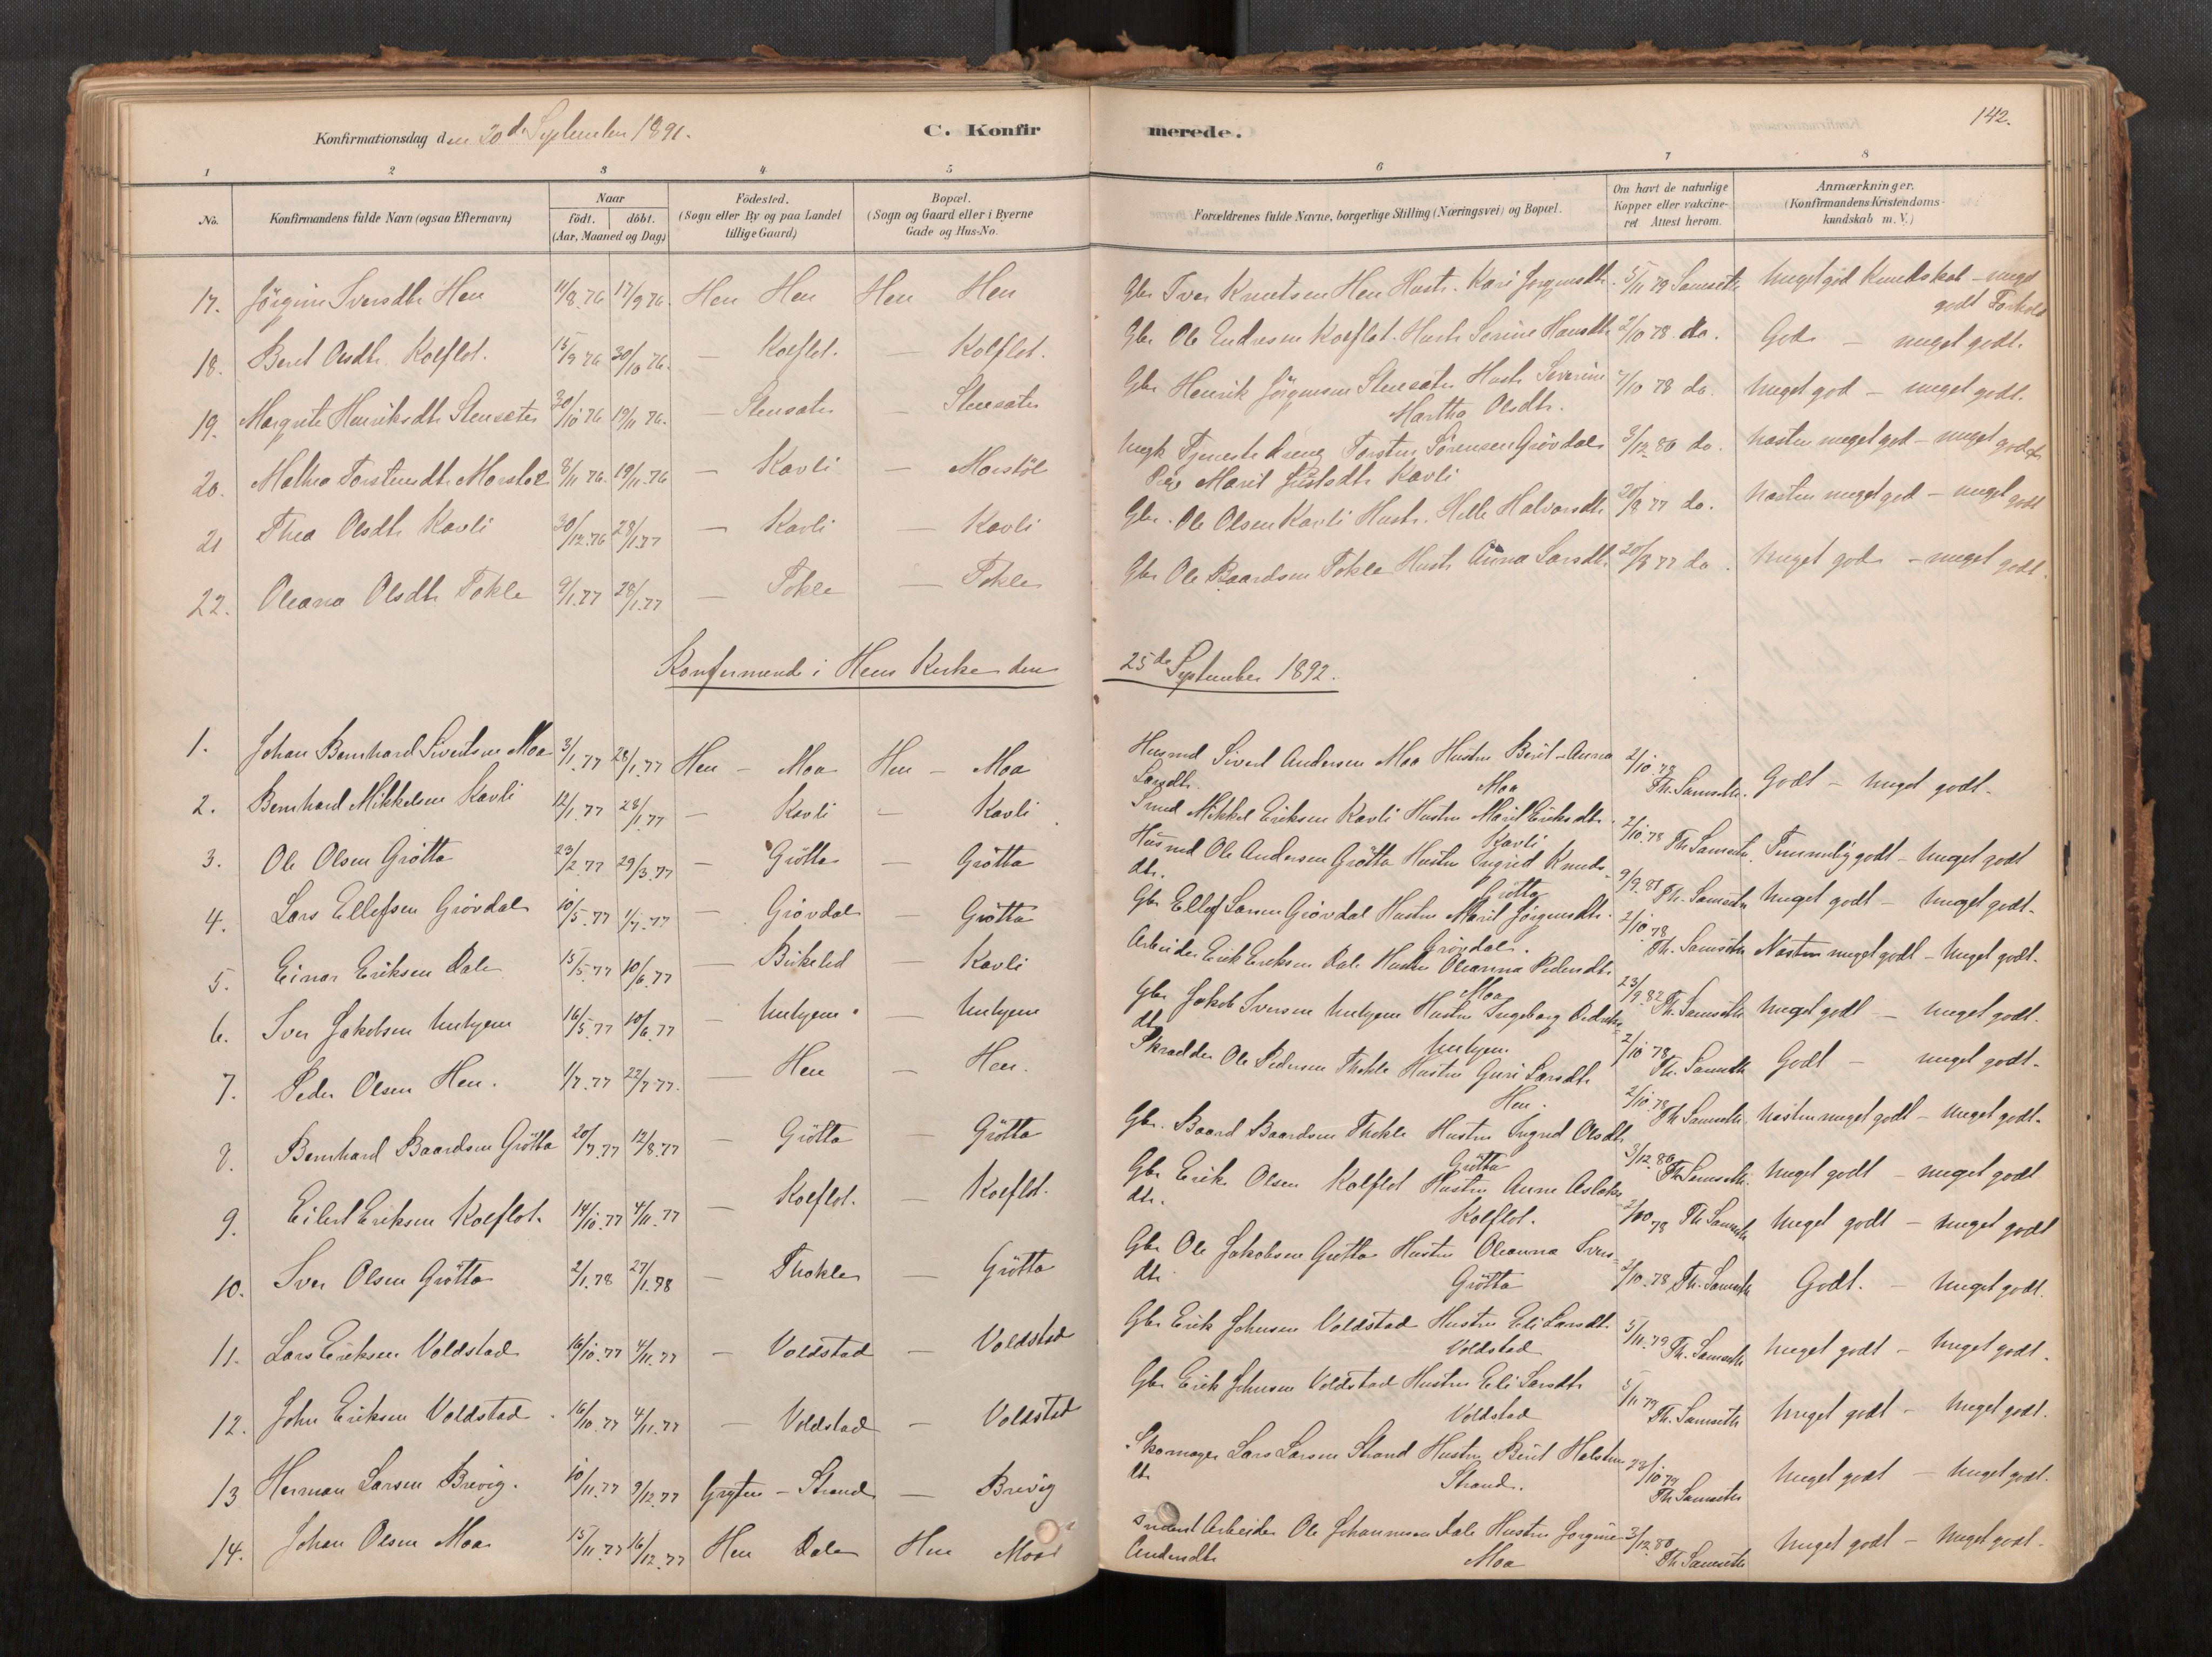 142.
Konfirmationsdag den 20de September 1891.
C. Konfirmerede.
1 2 3 4 5 6 7 8
No.
Konfirmandens fulde Navn (ogsaa Efternavn)
Naar
födt. döbt.
(Aar, Maaned og Dag)
Födested.
(Sogn eller By og paa Landet
tillige Gaard)
Bopæl.
(Sogn og Gaard eller i Byerne
Gade og Hus-No.
Forældrenes fulde Navne, borgerlige Stilling (Næringsvei) og Bopæl.
Om havt de naturlige
Kopper eller vakcine-
ret Attest herom.
Anmærkninger.
(Konfirmandens Kristendoms-
kundskab m. V.)
17. Jörgine Iversdtr Hen 11/8 76 17/9 76 Hen Hen Hen Hen Gbr Iver Knutsen Hen Hustr. Kari Jörgensdtr. 5/11 79 Samsete Meget god Kundskab - meget
godt Forhold
18. Berit Olsdtr. Kolflot. 15/9 76 30/10 76. — Kolflot. — Kolflot. Gbr Ole Endresen Kolflot. Hustr Serine Hansdtr 2/10 78 do. God — meget godt.
19. Margrete Henriksdtr Stensæter 30/10 76 19/11 76. — Stensæter — Stensæter Gbr Henrik Jörgensen Stensæter Hustr Severine 2/10 78 do. Meget god — meget godt.
Martha Olsdtr.
20. Mathea Torstensdtr Morstöl 8/11 76. 19/11 76 — Kavli — Morstöl Ungk Tjenestedreng Torsten Sörensen Grövdal 3/12 80 do. Næsten meget god — meget godt
Pige Marit Justsdtr Kavli
21 Thea Olsdtr Kavli 30/12 76 28/1 77 — Kavli — Kavli Gbr. Ole Olsen Kavli Hustr. Helle Halvorsdtr 20/8 77 do. Næsten meget god — meget godt
22. Oleana Olsdtr Tokle 9/1.77 28/1.77 — Tokle — Tokle Gbr Ole Baardsen Tokle Hustr Anna Larsdtr 20/8 77 do. Meget god — meget godt.
Konfirmerede i Hens Kirke den 25de September 1892.
1. Johan Bernhard Sivertsen Moa 3/1.77 28/1.77 Hen — Moa Hen — Moa Husmd Sivert Andersen Moa Hustru Berit-Anna 2/10.78
Larsdtr. Moa Th. Samsete. Godt — Meget godt.
2. Bernhard Mikkelsen Kavli 12/1.77 28/1.77 — Kavli — Kavli Smed Mikkel Eriksen Kavli Hustru Marit Eriksdtr.
Kavli 2/10.78 Th. Samsete. Temmelig godt — Meget godt
3. Ole Olsen Grötta 23/2.77 29/3.77 — Grötta — Grötta Husmd Ole Andersen Grötta Hustru Ingrid Knuds-
dtr. Grötta 9/9.81 Th. Samsete Meget godt — Meget godt.
4. Lars Ellefsen Grövdal 10/5.77 1/7.77 — Grövdal — Grötta Gbr Ellef Larsen Grövdal Hustru Marit Jörgensdtr.
Grövdal. 2/10.78 Th. Samsete Næsten meget godt — Meget godt.
5. Einar Eriksen Dale 15/5.77 10/6.77 — Birkeled — Kavli Arbeider Erik Eriksen Dale Hustru Oleanna Pedersdtr
Moa 23/9.82 Th. Samsete Meget godt — Meget godt.
6. Iver Jakobsen Unhjem 16/5.77 10/6.77 — Unhjem — Unhjem Gbr Jakob Iversen Unhjem Hustru Ingeborg
dtr Unhjem. 2/10 78 Th. Samsete Godt — meget godt.
7. Peder Olsen Hen. 1/7.77 22/7.77. — Hen — Hen. Skrædder Ole Pedersen Thokle Hustru Guri Larsdtr
Hen. 2/10.78 Th Samsete. Næsten meget godt — Meget godt.
8. Bernhard Baardsen Grötta 20/7.77 12/8.77 — Grötta — Grötta Gbr. Baard Baardsen Thokle Hustru Ingrid Olsdtr
Grötta 3/12 80 Th Samsete. Meget godt — meget godt
9. Eilert Eriksen Kolflot. 14/10.77 4/11.77 — Kolflot. — Kolflot. Gbr Erik Olsen Kolflot Hustru Anne Aslaks
dtr. Kolflot. 2/10 78 Th Samsete Meget godt — Meget godt
10. Iver Olsen Grötta 2/1.78 27/1.78 — Thokle — Grötta Gbr Ole Jakobsen Grötta Hustru Oleanna Ivers-
dtr Grötta 2/10.78 Th. Samsete Godt. — Meget godt.
11. Lars Eriksen Voldstad 16/10.77 4/11.77 — Voldstad — Voldstad Gbr Erik Johnsen Voldstad Hustru Eli Larsdtr.
Voldstad 5/11.79 Th. Samsete Meget godt — Meget godt.
12. John Eriksen Voldstad 16/10.77 4/11.77 — Voldstad — Voldstad Gbr Erik Johnsen Voldstad Hustru Eli Larsdtr
Voldstad 5/11 79 Th. Samsete Meget godt — Meget godt.
13 Herman Larsen Brevig. 10/11.77 9/12.77 Gryten — Strand — Brevig Skomager Lars Larsen Strand Hustru Berit Halsten
dtr Strand. 22/10 79 Th Samsete Meget godt — Meget godt.
14. Johan Olsen Moa 15/11.77 16/12.77 Hen Dale Hen Moa Arbeider Ole Johannesen Dale Hustru Jörgine 3/12.80
Andersdtr Moa Th. Samsete Meget godt — Meget godt.